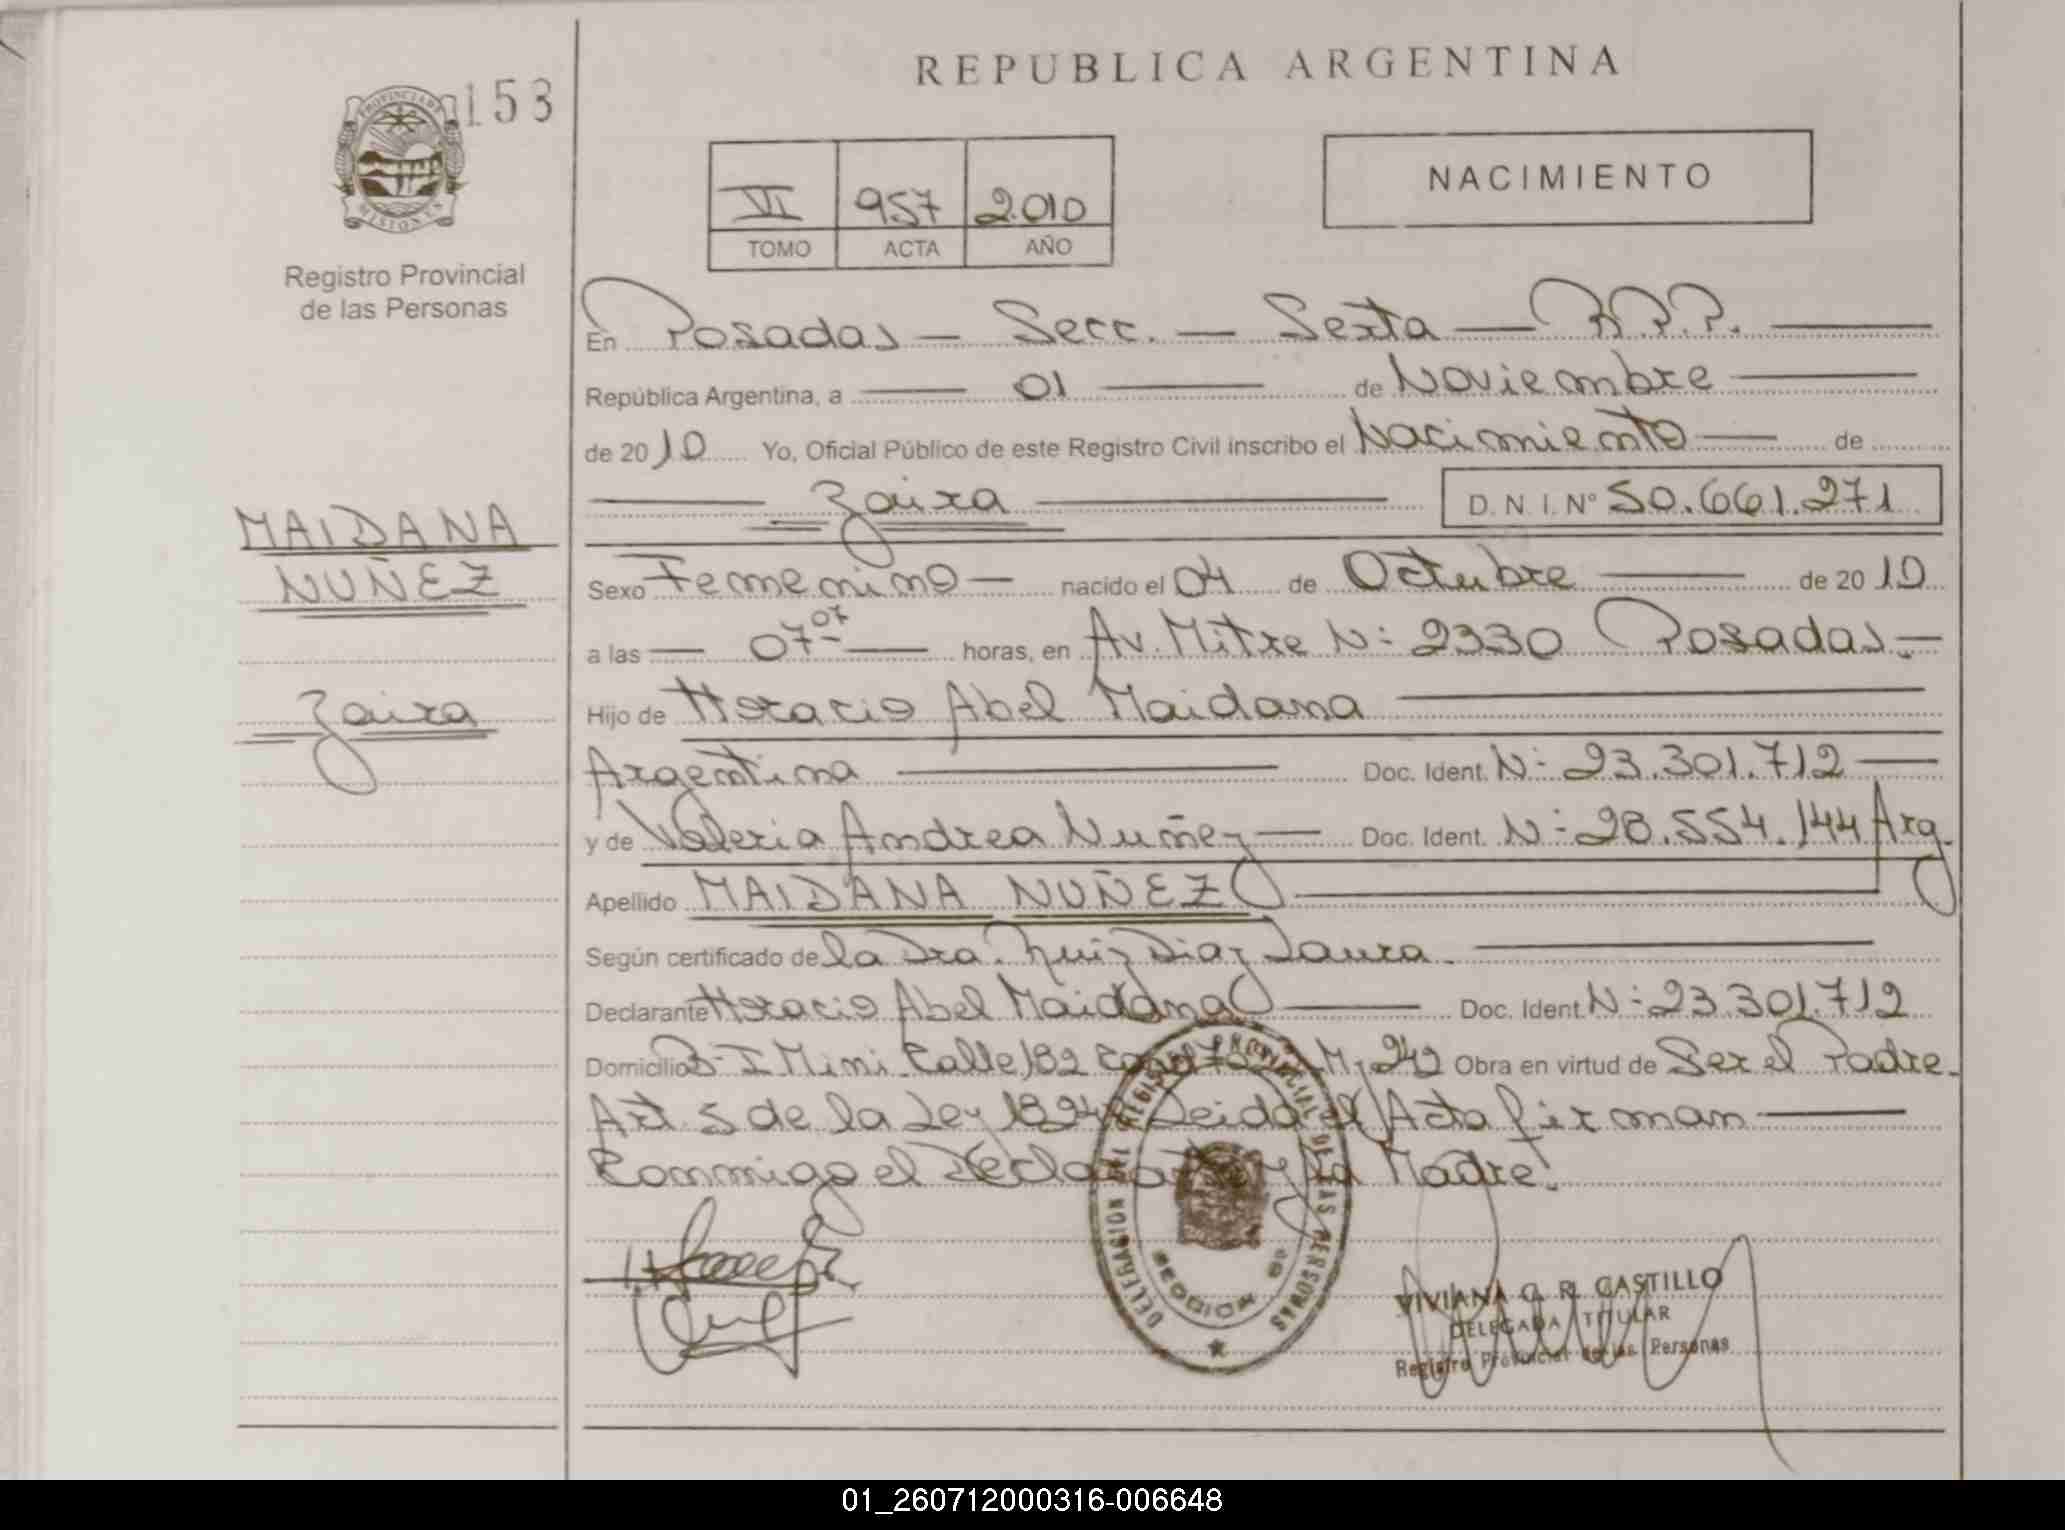 REPUBLICA ARGENTINA
153
PROVINCIA DE
MISIONES
Registro Provincial
de las Personas
VI 957 2.010
TOMO ACTA AÑO
NACIMIENTO
En Posadas — Secc. — Sexta — R.P.P. —
República Argentina, a — 01 — de Noviembre —
de 2010 Yo, Oficial Público de este Registro Civil inscribo el Nacimiento — de
— Zaira — D. N. I. Nº 50.661.271
MAIDANA
NUÑEZ
Zaira
Sexo Femenino — nacido el 04 de Octubre — de 2010
a las — 07 07 — horas, en Av. Mitre N: 2330 Posadas. —
Hijo de Horacio Abel Maidana —
Argentina — Doc. Ident. N: 23.301.712 —
y de Valeria Andrea Nuñez — Doc. Ident. N: 28.554.144 Arg.
Apellido MAIDANA NUÑEZ —
Según certificado de la Dra. Ruiz Diaz Laura. —
Declarante Horacio Abel Maidana — Doc. Ident. N: 23.301.712
Domicilio B- I Mini. Calle 182 M. 242 Obra en virtud de Ser el Padre.
Art. 5 de la Ley Leida el Acta firman —
Conmigo el y la Madre.
DELEGACION DEL REGISTRO PROVINCIAL DE LAS PERSONAS
SECCION 6º
VIVIANA G. R. CASTILLO
DELEGADA TITULAR
Registro Provincial de las Personas
01_260712000316-006648